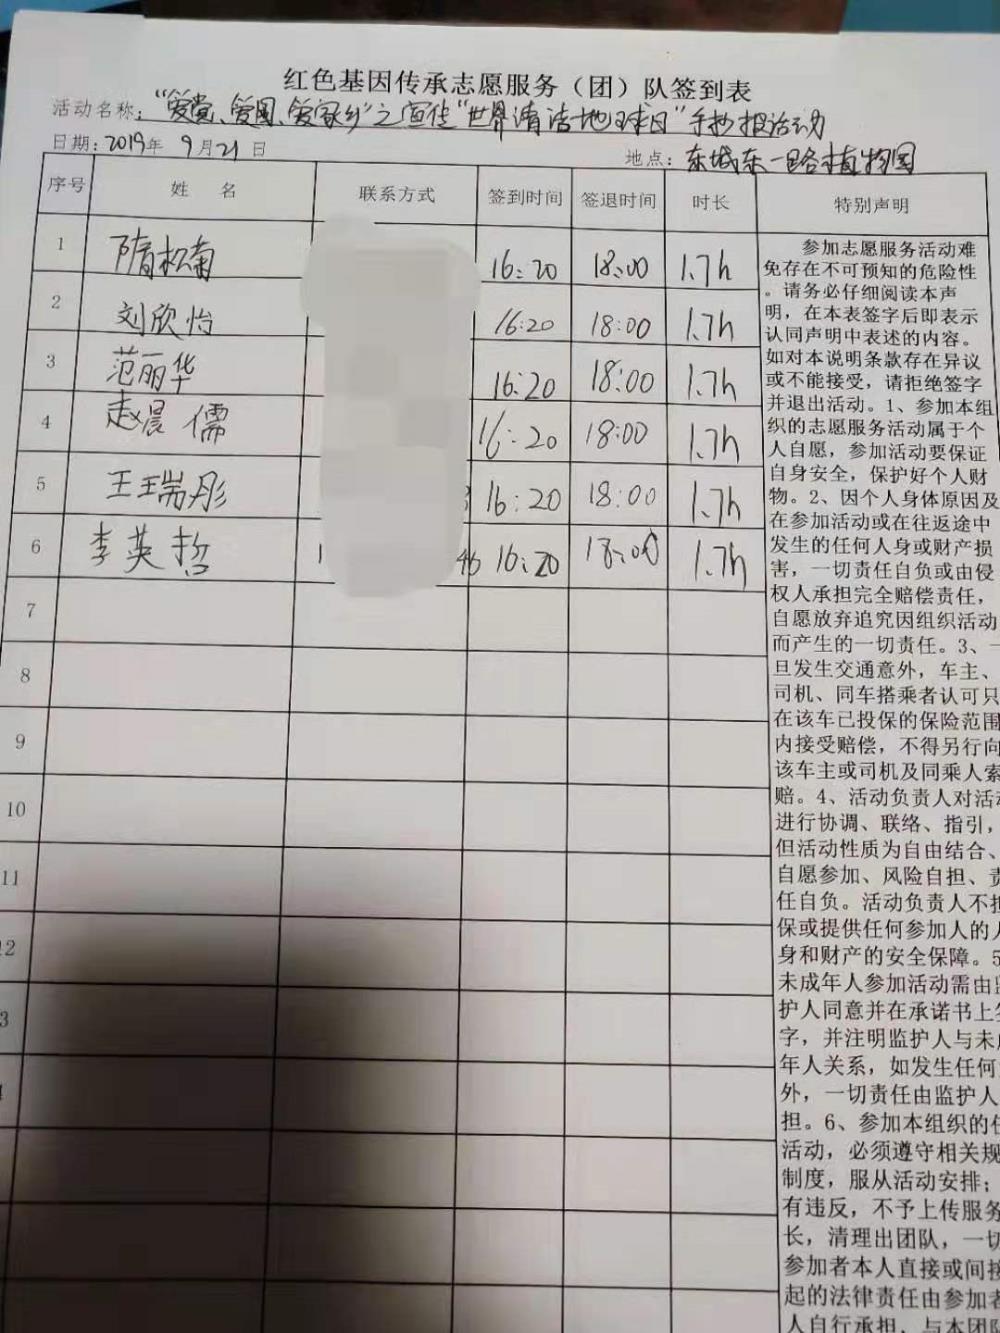 红色基因传承志愿服务（团）队签到表
活动名称："爱党、爱国、爱家乡"之宣传"世界清洁地球日"手抄报活动
日期：2019年 9月21日 地点：东城东一路植物园
序号 姓 名 联系方式 签到时间 签退时间 时长 特别声明
1 隋松南 16:20 18:00 1.7h
2 刘欣怡 16:20 18:00 1.7h
3 范丽华 16:20 18:00 1.7h
4 赵晨儒 16:20 18:00 1.7h
5 王瑞彤 16:20 18:00 1.7h
6 李英哲 1 46 16:20 18:00 1.7h
7
8
9
10
11
12
3
参加志愿服务活动难
免存在不可预知的危险性
。请务必仔细阅读本声
明，在本表签字后即表示
认同声明中表述的内容。
如对本说明条款存在异议
或不能接受，请拒绝签字
并退出活动。1、参加本组
织的志愿服务活动属于个
人自愿，参加活动要保证
自身安全，保护好个人财
物。2、因个人身体原因及
在参加活动或在往返途中
发生的任何人身或财产损
害，一切责任自负或由侵
权人承担完全赔偿责任，
自愿放弃追究因组织活动
而产生的一切责任。3、一
旦发生交通意外，车主、
司机、同车搭乘者认可只
在该车已投保的保险范围
内接受赔偿，不得另行向
该车主或司机及同乘人索
赔。4、活动负责人对活动
进行协调、联络、指引，
但活动性质为自由结合、
自愿参加、风险自担、责
任自负。活动负责人不担
保或提供任何参加人的人
身和财产的安全保障。5
未成年人参加活动需由监
护人同意并在承诺书上签
字，并注明监护人与未成
年人关系，如发生任何意
外，一切责任由监护人
担。6、参加本组织的任
活动，必须遵守相关规
制度，服从活动安排；
有违反，不予上传服务
长，清理出团队，一切
参加者本人直接或间接
起的法律责任由参加者
人自行承担，与本团队